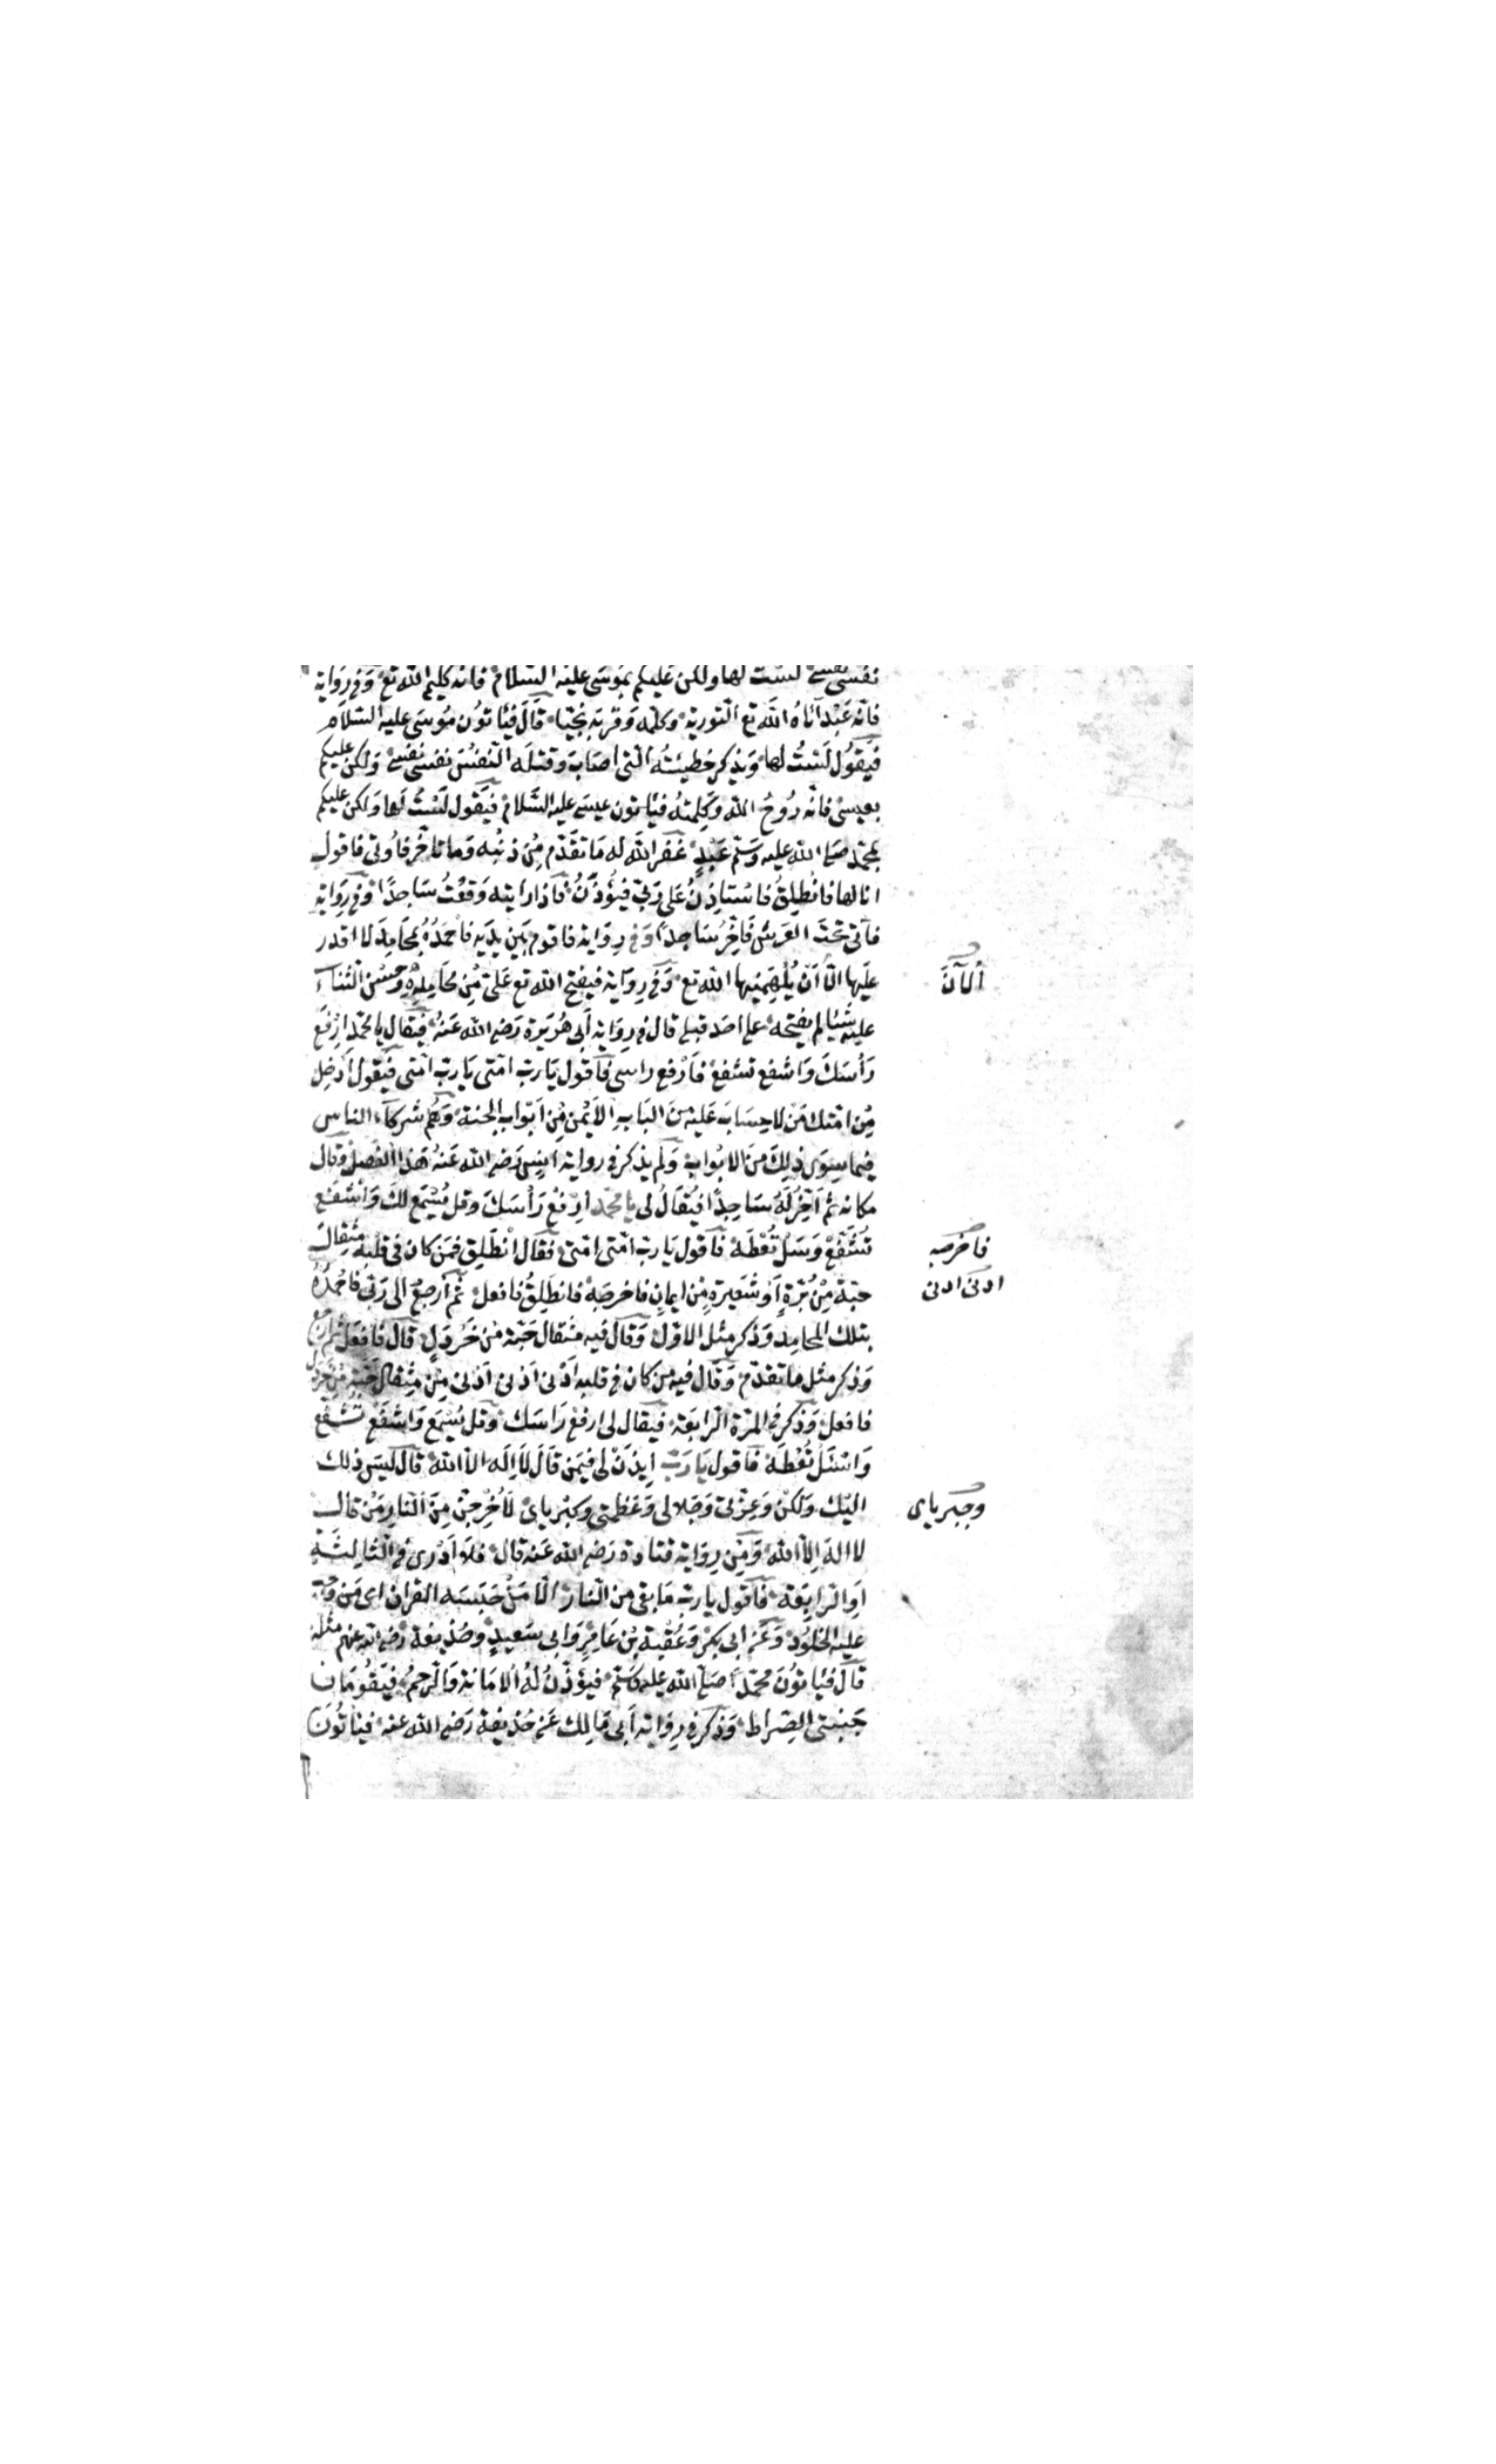 نفسى نفسى لست لها ولكن عليكم بموسى عليه السلام فانه كليم الله تع وفى رواية
فانه عبد آتاه الله تع التورية وكلمه وقربه نجيا قال فيأتون موسى عليه السلام
فيقول لست لها ويذكر خطيئته التى اصاب وقتله النفس نفسى نفسى ولكن عليكم
بعيسى فانه روح الله وكلمته فيأتون عيسى عليه السلام فيقول لست لها ولكن عليكم
بمحمد صلى الله عليه وسلم عبد غفر الله له ما تقدم من ذنبه وما تأخر فاوتى فاقول
انا لها فانطلق فاستاذن على ربى فيؤذن فاذا رايته وقعت ساجدا وفى رواية
فآتى تحت العرش فاخر ساجدا وفى رواية فاقوم بين يديه فاحمده بمحامد لا اقدر
عليها الا ان يلهمنيها الله تع وفى رواية فيفتح الله تع على من محامده وحسن الثناء
عليه شيئا لم يفتحه على احد قبلى قال فى رواية أبى هريرة رضى الله عنه فيقال يا محمد ارفع
رأسك واشفع تشفع فارفع راسى فاقول يا رب امتى يا رب امتى فيقول أدخل
من امتك من لا حساب عليه من الباب الأيمن من ابواب الجنة وهم شركاء الناس
فيما سوى ذلك من الابواب ولم يذكر فى رواية انس رضى الله عنه هذا الفصل وقال
مكانه ثم أخر له ساجدا فيقال لى يا محمد ارفع رأسك وقل يسمع لك واشفع
تشفع وسل تعطه فاقول يا رب امتى امتى فقال انطلق فمن كان فى قلبه مثقال
حبة من برة او شعيرة من ايمان فاخرجه فانطلق فافعل ثم ارجع الى ربى فاحمده
بتلك المحامد وذكر مثل الاول وقال فيه مثقال حبة من خردل قال فافعل ثم ارجع
وذكر مثل ما تقدم وقال فيه من كان فى قلبه ادنى ادنى ادنى من مثقال حبة من خردل
فافعل وذكر فى المرة الرابعة فيقال لى ارفع راسك وقل يسمع واشفع تشفع
واسئل تعطه فاقول يا رب ايذن لى فيمن قال لا اله الا الله قال ليس ذلك
اليك ولكن وعزتى وجلالى وعظمتى وكبرياى لأخرجن من النار من قال
لا اله الا الله ومن رواية قتادة رضى الله عنه قال فلا ادرى فى الثالثة
او الرابعة فاقول يا رب ما بقى من النار الا من حبسه القران اى من وجب
عليه الخلود وعن ابى بكر وعقبة بن عامر وابى سعيد وحذيفة رضى الله عنهم مثله
قال فيأتون محمدا صلى الله عليه وسلم فيؤذن له الامانة والرحم فيقومان
جنبتى الصراط وذكر فى رواية ابى مالك عن حذيفة رضى الله عنه فيأتون
ألآن
فاخرجه
ادنى ادنى
وجبرياى